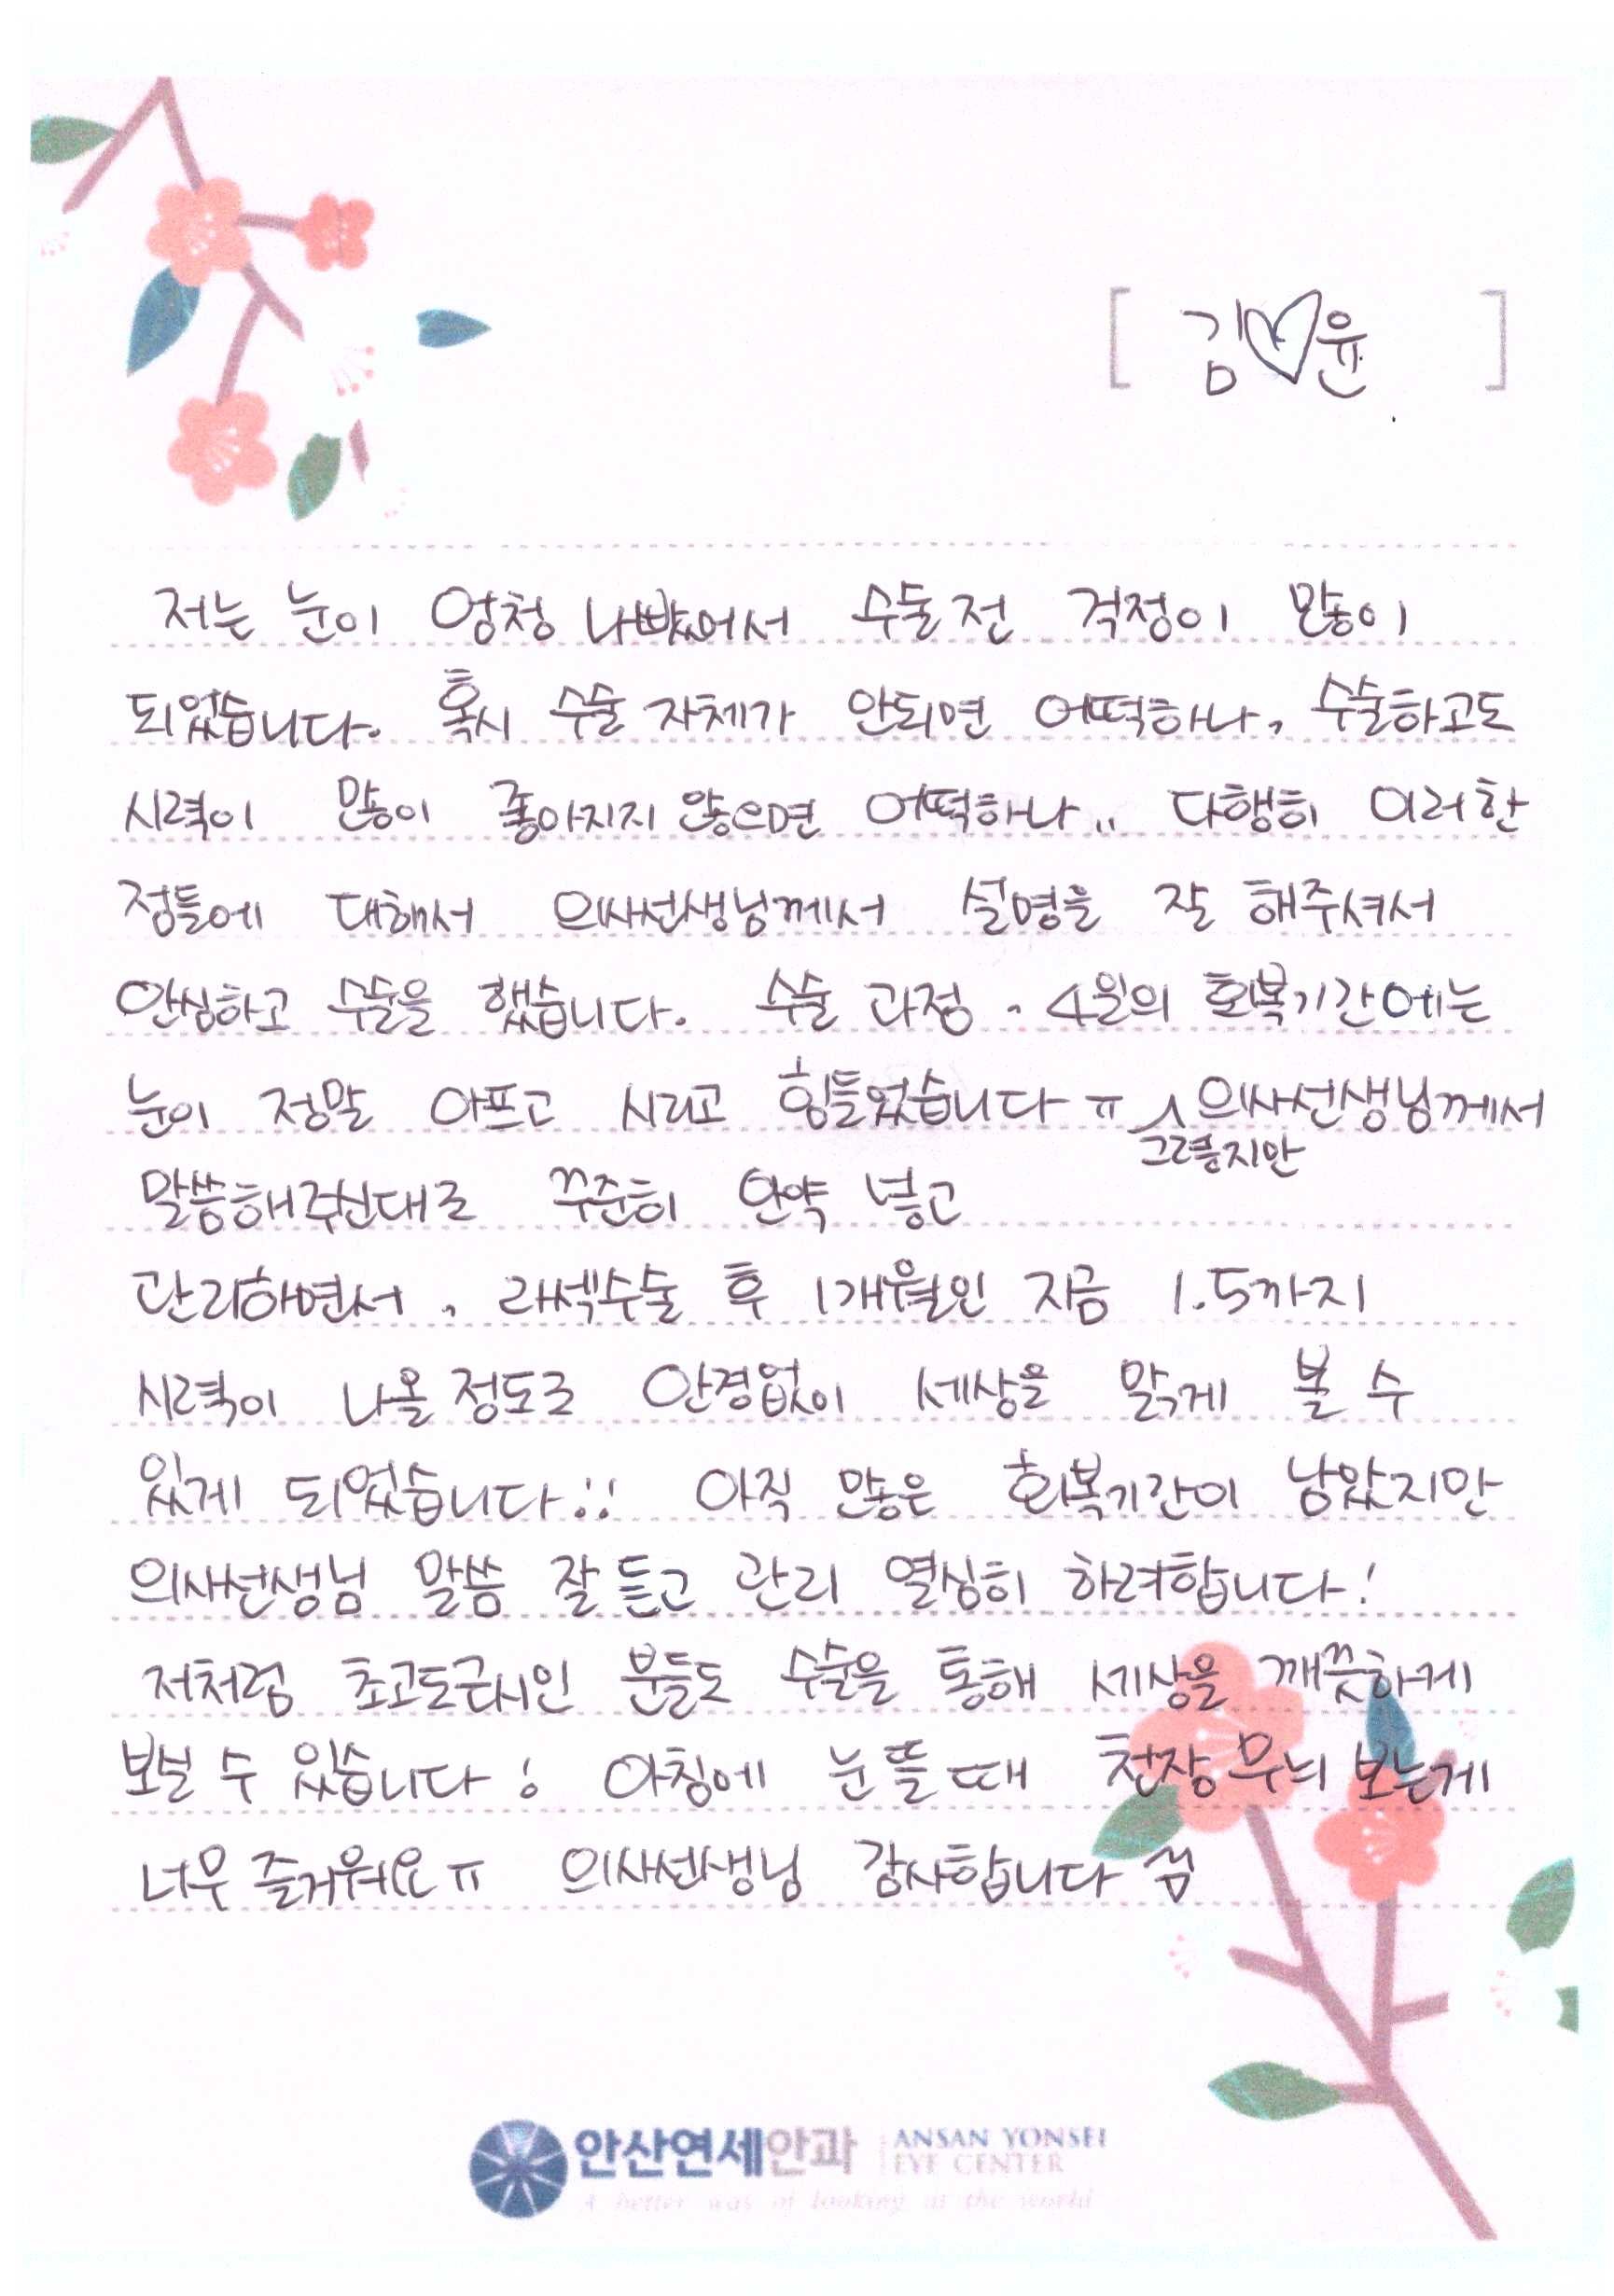 [ 김♡윤 ]
저는 눈이 엄청 나빴어서 수술전 걱정이 많이
되었습니다. 혹시 수술 자체가 안되면 어떡하나, 수술하고도
시력이 많이 좋아지지 않으면 어떡하나.. 다행히 이러한
점들에 대해서 의사선생님께서 설명을 잘 해주셔서
안심하고 수술을 했습니다. 수술 과정, 4일의 회복기간에는
눈이 정말 아프고 시리고 힘들었습니다ㅠ 그렇지만 의사선생님께서
말씀해주신대로 꾸준히 안약 넣고
관리하면서, 라섹수술 후 1개월인 지금 1.5까지
시력이 나올 정도로 안경없이 세상을 맑게 볼 수
있게 되었습니다!! 아직 많은 회복기간이 남았지만
의사선생님 말씀 잘 듣고 관리 열심히 하려합니다!
저처럼 초고도근시인 분들도 수술을 통해 세상을 깨끗하게
보실 수 있습니다! 아침에 눈뜰 때 천장 무늬 보는게
너무 즐거워요ㅠ 의사선생님 감사합니다
안산연세안과 ANSAN YONSEI
EYE CENTER
A better way of looking at the world